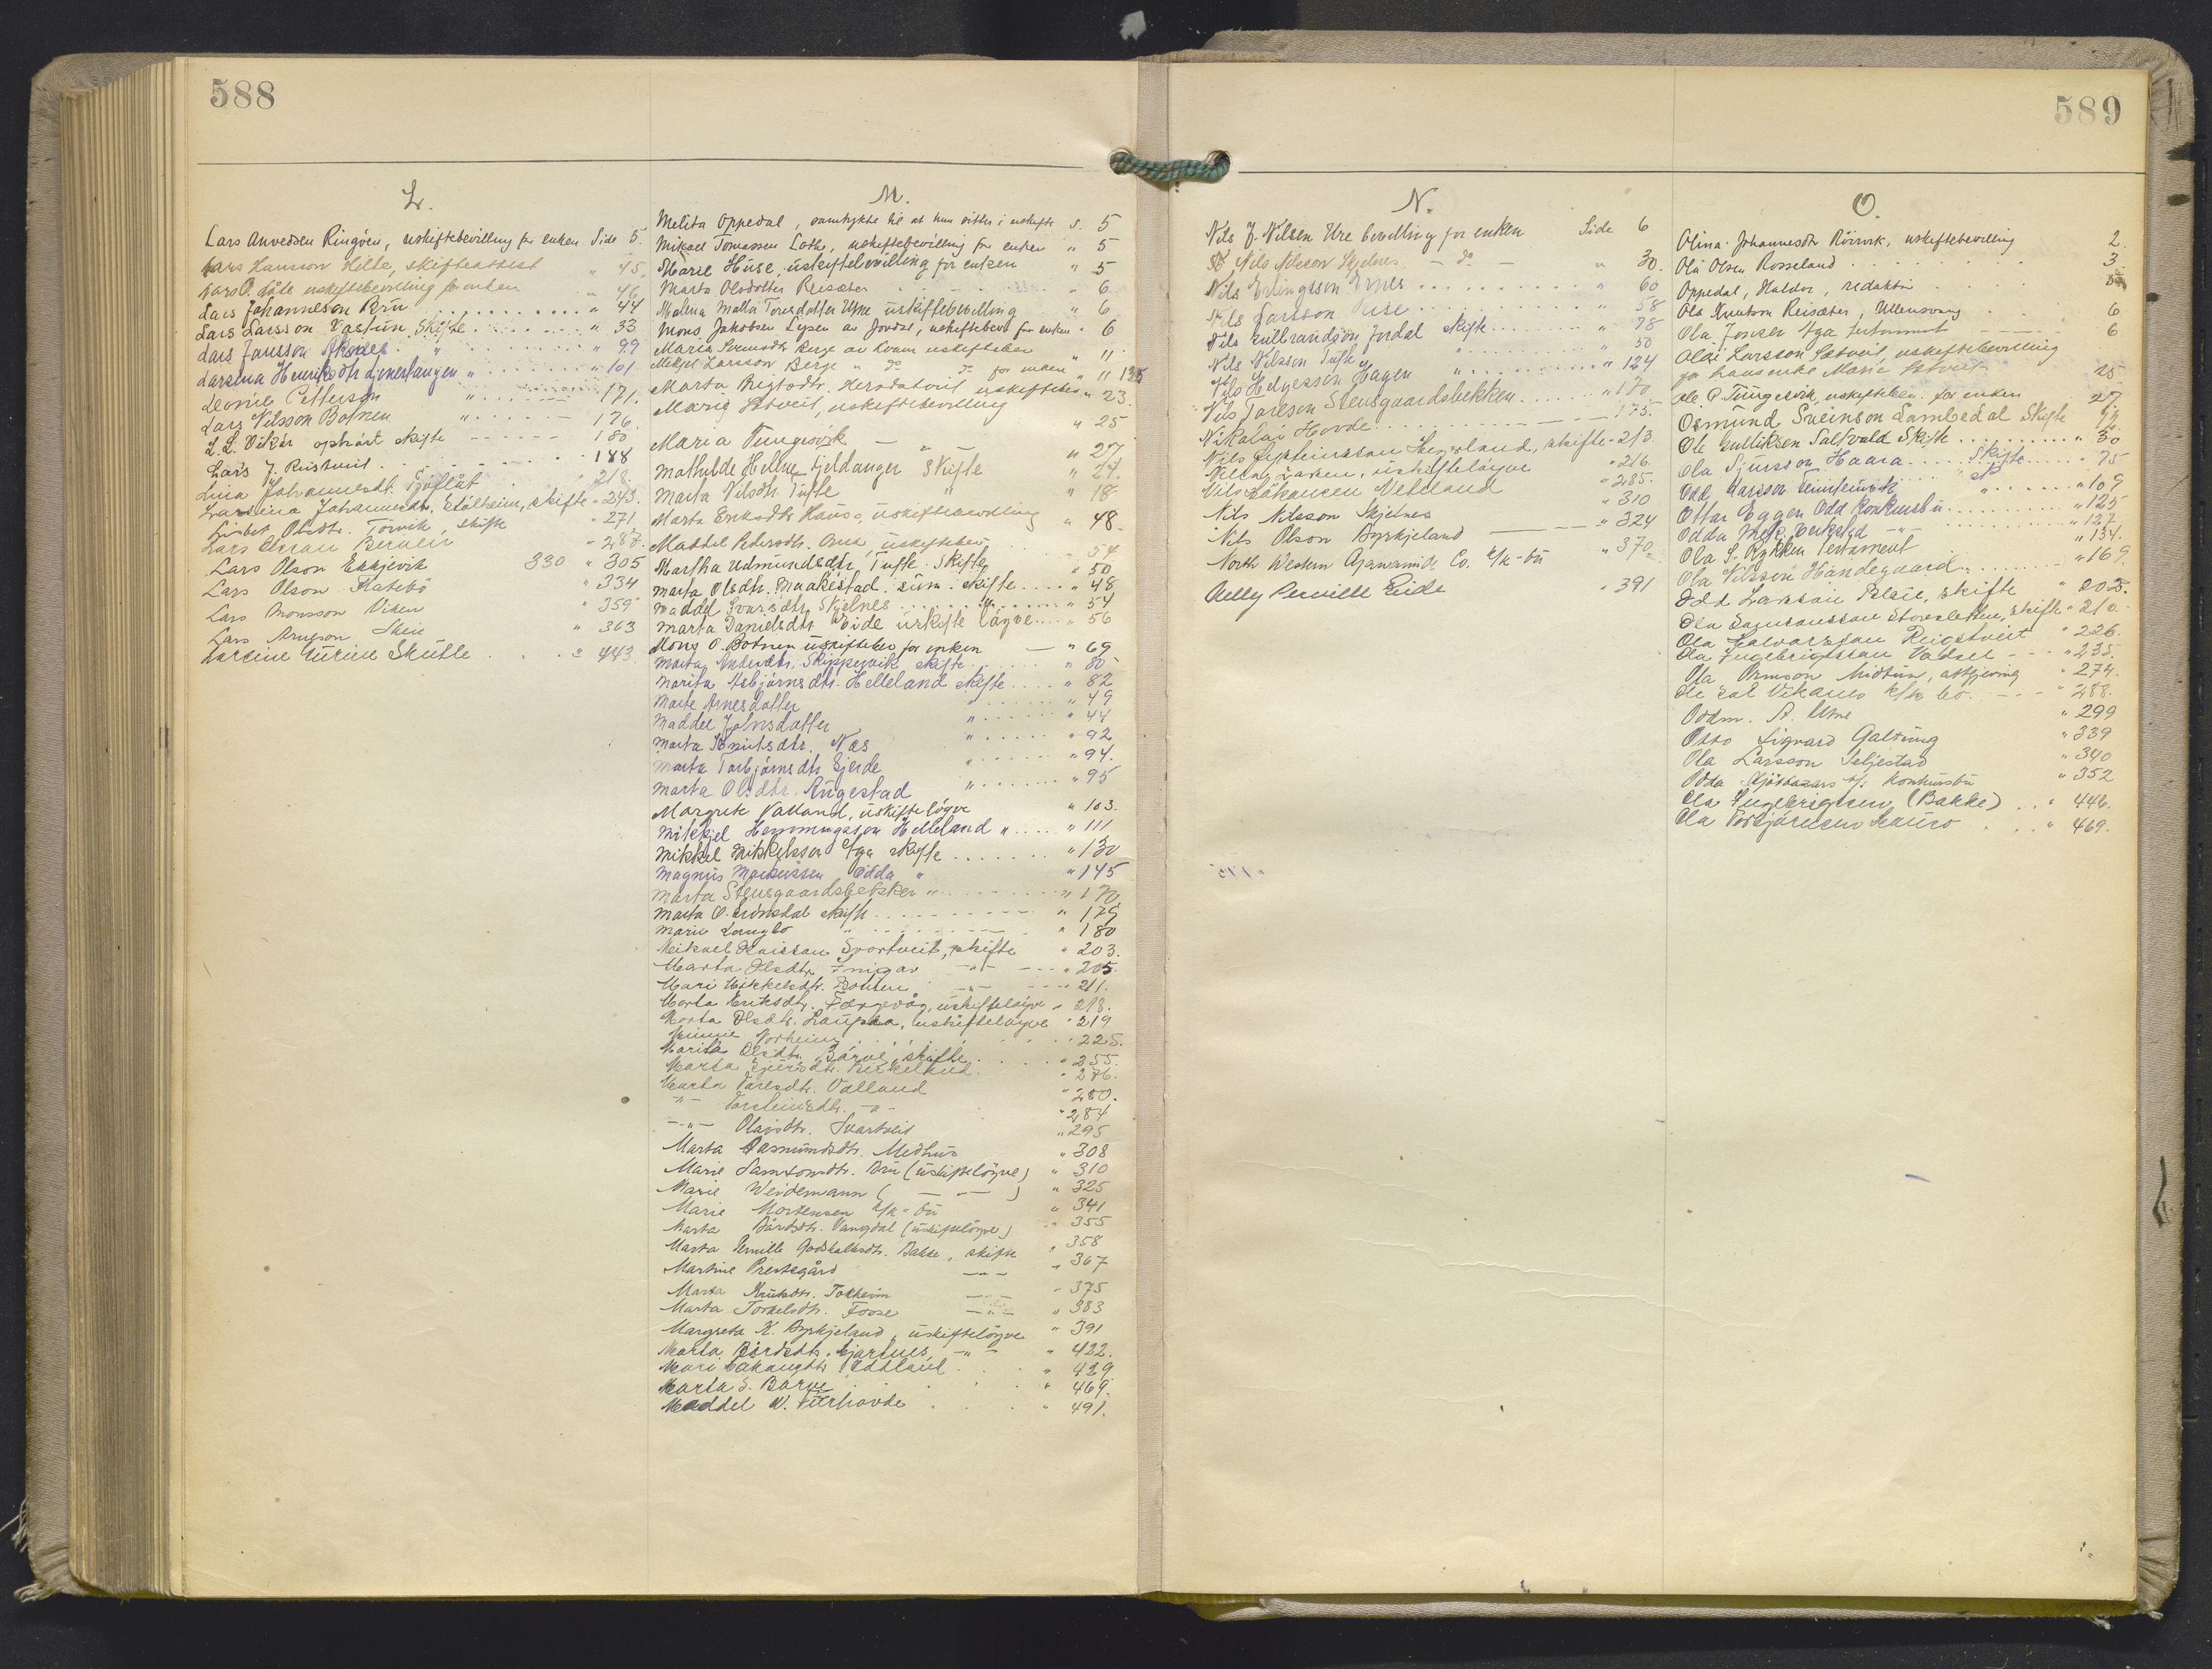 588
L.
Lars Amundsen Ringøen, uskiftebevilling for enken Side 5.
Lars Hansson Hilde, skifteattest " 45.
Lars O. uskiftebevilling for enken " 46
Lars Johanneson Bru " 44
Lars Larsson Vastun, Skifte " 33
Lars Jansson " 99
Larsina Henriksdtr " 101
Leonice Petterson " 171.
Lars Nilsson Botnen " 176.
L. L. Vikör ophört skifte 180
Lars J. Reistveit 188
Lina Johannesdt. " 218.
Larsina Johannesdtr. Stölheim, skifte " 243.
Lisbet Olsdtr. Törvik, skifte " 271
Lars " 287.
Lars Olson Ekkjevik 330 " 305
Lars Olson Flatebö " 334
Lars Monsson Viken " 359
Lars Arneson Skeie " 363
Larsine Skutle " 443.
M.
Melita Oppedal, samtykke til at hun sitter i uskifte S. 5
Mikael Tomassen Lothe, uskiftebevilling for enken " 5
Marie Huse, uskiftebevilling for enken " 5
Marta Olsdotter Reisæter " 6
Malena Malla Toresdatter Utne uskiftebevilling " 6
Mons Jakobsen Lysen av Jondal, uskiftebev. for enken " 6
Maria Svensdtr Berge av Kvam uskiftebev " 11
Mikjel Larsson Berge " do do for enken " 11 135
Marta uskiftebev. " 23.
Maria Sætveit, uskiftebevilling " 25
Maria Tungesvik — " " 27
Mathilde Helene Fjeldanger Skifte " 24.
Marta Nilsdtr. Tufte " " 18
Marta Eriksdtr Hauso, uskiftebevilling " 48.
Maddel Pedersdtr. uskiftebev. " 54
Martha Udmundsdtr. Tufte Skifte " 50
Marta Olsdtr. Maakestad sum. skifte " 48
Maddel Ivarsdtr. Skjelnes " 54
Marta Danielsdtr Eide uskifte löyve " 56
Mons O. Botnen uskiftebev for enken — " 69
Marta Andersdtr. Skippervik skifte " 80
Marita Asbjörnsdtr. Helleland skifte " 82
Marte Arnesdatter " " 49
Maddel Johnsdatter " " 44
Marta Knutsdtr. Næs " " 92
Marta Torbjörnsdtr Gjerde " " 94.
Marta Olsdtr. Augestad " " 95
Margrete Valland, uskiftelöyve " 103.
Mikkjel Hemmingsson Helleland " " 111
Mikkel Mikkelsson Aga skifte " 130
Magnus Markussen Odda " " 145
Marta Stensgaardsbekken " " 170,
Marta O. Grönsdal skifte " 179
Marie Langlo " " 180
Mikael Svartveit, skifte " 203.
Marta Olsdtr. — " — " 205.
Mari Mikkelsdtr. Botnen — " — 211.
Marta Eriksdtr. Færgevåg, uskiftelöyve " 218.
Marta Olsdtr. Laupsa, uskiftelöyve " 219
Minnie Norheim 225.
Marita Olsdtr. Börve, skifte " 255.
Marta Sjursdtr. " 276.
Marta Torlsdtr. Valland " 280.
— " — Torsteinsdtr. — " — " 284
— " — Olavsdtr. Svartveit " 295
Marta Oasmundsdtr. Medhus " 308
Marie Samsonsdtr. Bru (uskiftelöyve) " 310
Marie Weidemann ( — " — ) " 325
Marie Mortensen k/k - bu " 341
Marta Bårdsdtr. Vangdal (uskiftelöyve) " 355
Marta Pernille Godskalksdtr. Bakke, skifte " 358
Martine Prestegård — " — " 367
Marta Knutsdtr. Tokheim — " — " 375
Marta Torkelsdtr. Fosse — " — " 383
Margreta K. Byrkjeland, uskiftelöyve " 391
Marta Bårdsdtr. — " — " 422.
Mari Håkansdtr. " 429
Marta S. Börve " 469.
Maddel N. " 491.
589
N.
Nils J. Nilsen Ure bevilling for enken Side 6
Nils Nilsson Skjelnes — do — " 30.
Nils Erlingsson Ernes " 60
Nils Larsson Reise " 58
Nils Gulbrandson Jordal skifte " 78
Nils Nilsson Tufte " " 50
Nils Helgesson Hagen " " 124
Nils Torleson Stensgaardsbekken " 170
Nikolai Hovde 175.
Nils skifte - 213.
uskiftelöyve " 216.
Nils Håkansen Veteland " 285.
Nils Nilsson Skjelnes " 310
Nils Olson Byrkjeland " 324
North Western Cyanamide Co. k/k - bu " 370
Nelly Pernille Eide " 391
O.
Olina Johannesdtr Rörvik, uskiftebevilling 2.
Ola Olsen Rosseland 3
Oppedal, Haldor, redaktör 5
Ole Knutson Reisæter, Ullensvang 6
Ola Jonsen Aga testament 6
Olai Larsson Sætveit, uskiftebevilling
for hans enke Marie Sætveit 25
Ole P. Tungesvik, uskiftebev. for enken 27
Osmund Sveinson Lambedal Skifte 42.
Ole Gulliksen Saltvold Skifte " 30
Ola Sjursson Haara Skifte " 75
Odd " " 109
Ottar Eggen Odd Konkursbu " 125
Odda Mek. Verksted — " — " 127
Ola S. Rykken Testament " 134.
Ola Nilsson Handegaard " " 169.
Odd Larsson skifte " 202.
Ola skifte " 210.
Ola Halvorsson Reigstveit " 226.
Ola Ingebrigtsson " 235.
Ola Ormson Midtun, attgjeving " 274.
Vikanes k/k bo. " 288.
Oddm. A. Utne " 299
Otto Sigvard Galtung " 339
Ola Larsson Seljestad " 340
Odda a/s konkursbu " 352
Ola Ingebrigtsen (Bakke) " 446.
Ola Torbjörnsen " 469.